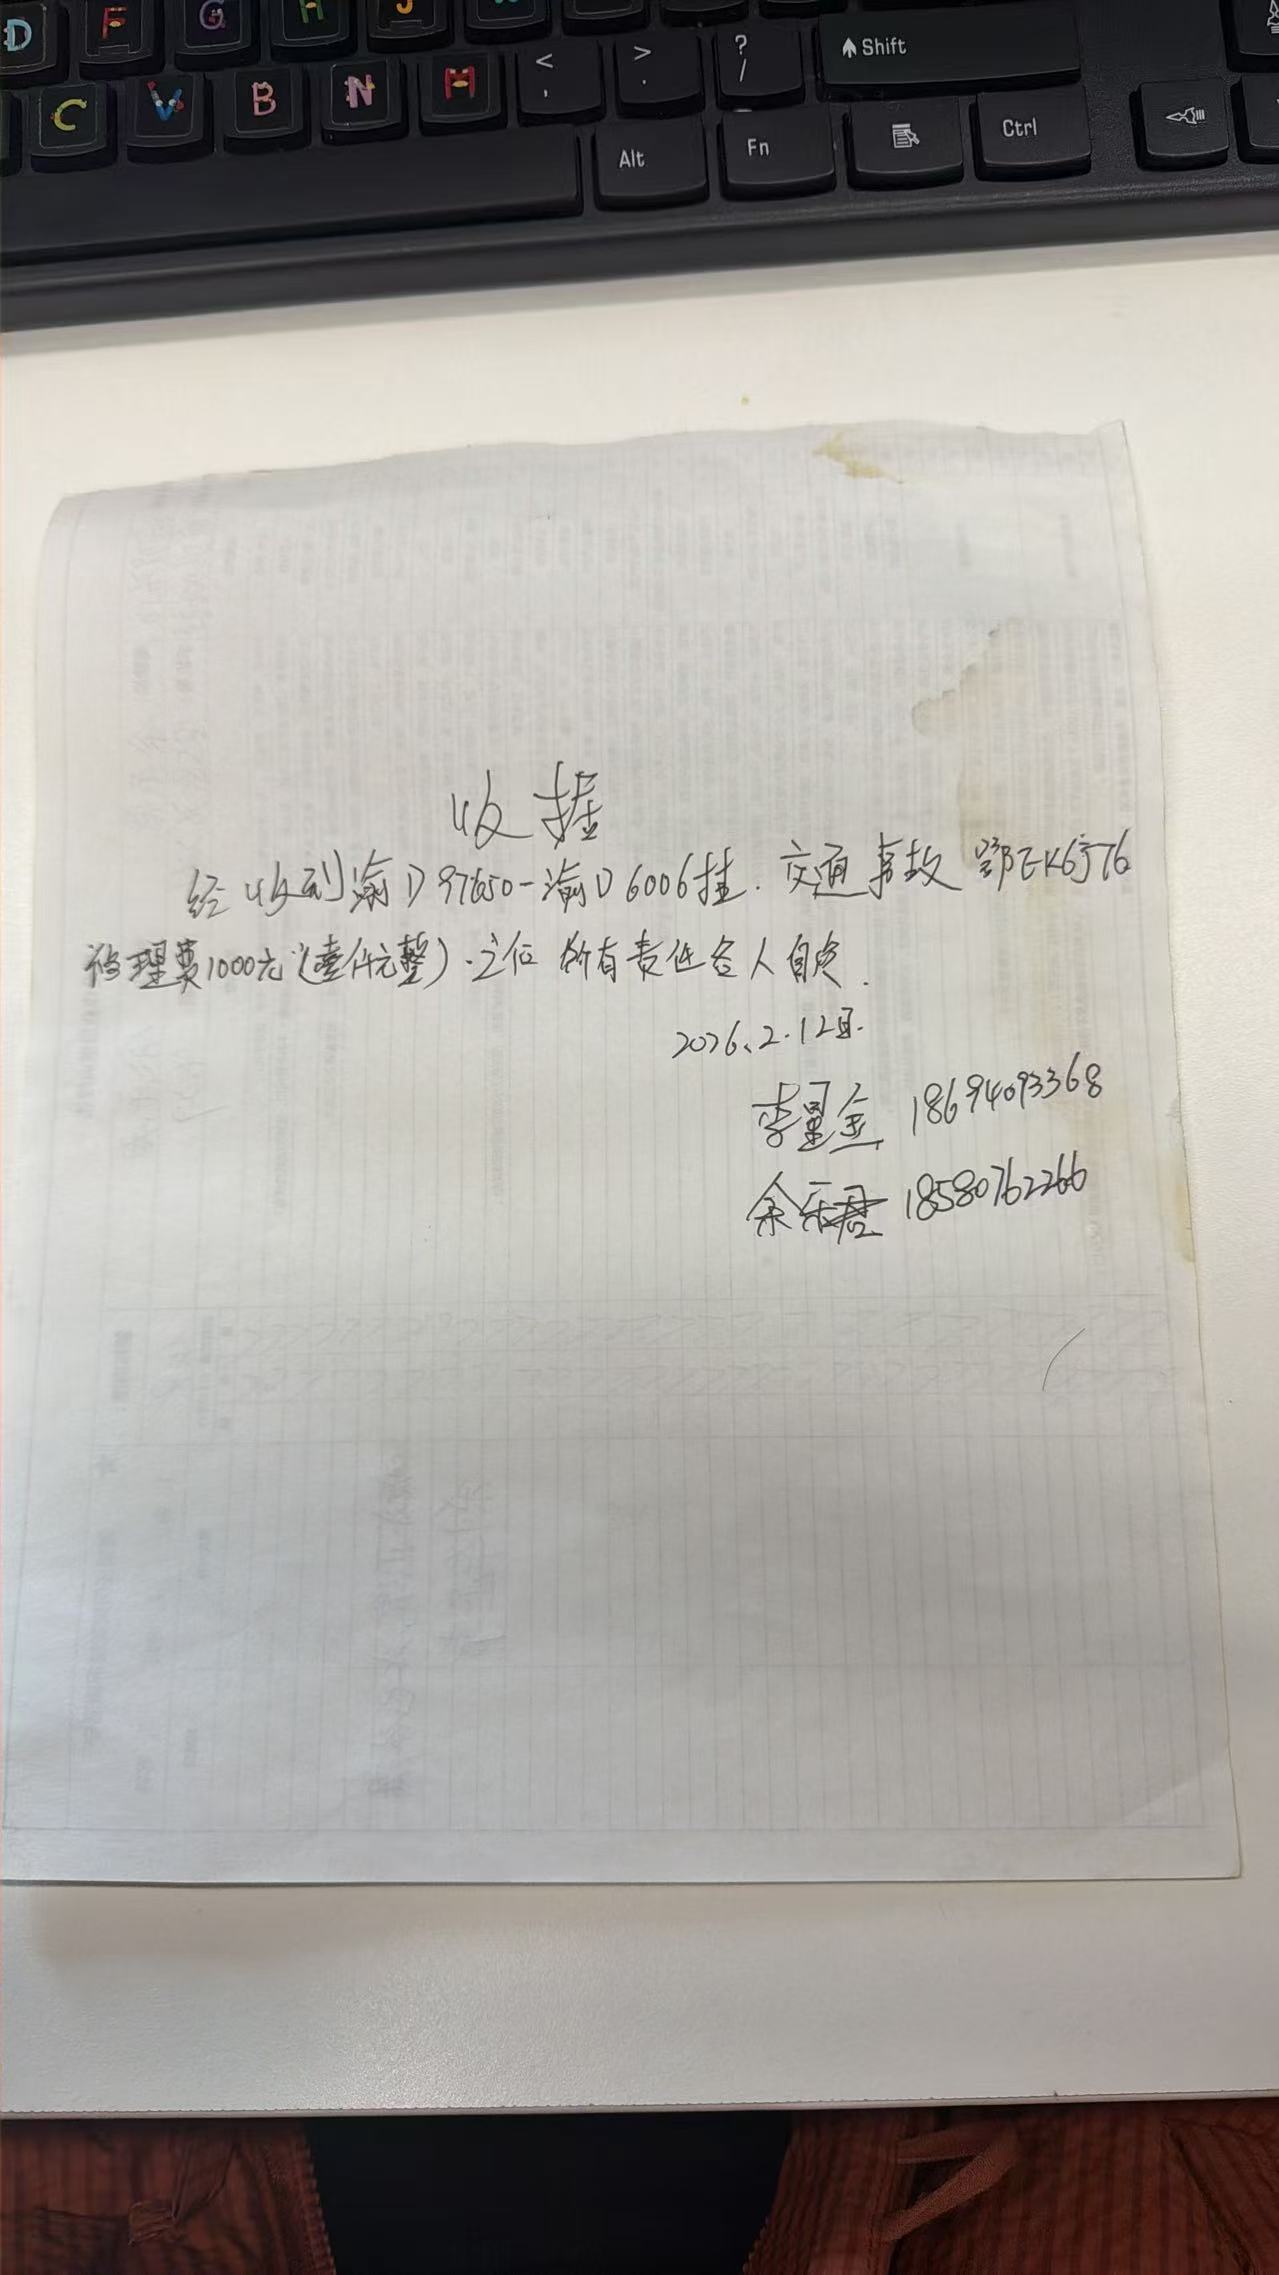 D F G H J
C V B N M < , > . ? / Shift
Alt Fn Ctrl
收据
经收到渝D97650-渝D6006挂.交通事故鄂EK6J76
修理费1000元(壹仟元整).之后所有责任各人自负.
2026.2.12日.
李星金 18694093368
余乐君 18580762266